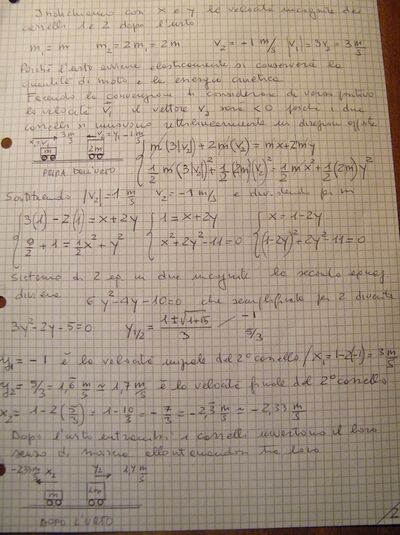 Indichiamo con x e y le velocità incognite dei
carrelli 1 e 2 dopo l'urto
m₁ = m m₂ = 2m₁ = 2m v₂ = -1 m/s |v₁| = 3v₂ = 3 m/s
Poiché l'urto avviene elasticamente si conserverà la
quantità di moto e la energia cinetica
Facendo la convenzione di considerare di verso positivo
la velocità v₁ il vettore v₂ sarà < 0 perché i due
carrelli si muovono rettilineamente in direzioni opposte
x₁=v₁ 3 m/s v₂=y₁=-1 m/s
m 2m
PRIMA DELL'URTO
m(3|v₂|) + 2m(v₂) = mx + 2my
½ m(3|v₂|)² + ½(2m)(v₂)² = ½mx² + ½(2m)y²
Sostituendo |v₂| = 1 m/s v₂ = -1 m/s e dividendo per m
3(1) - 2(1) = x + 2y 1 = x + 2y x = 1 - 2y
9/2 + 1 = ½x² + y² x² + 2y² - 11 = 0 (1-2y)² + 2y² - 11 = 0
Sistema di 2 eq. in due incognite la seconda
diviene 6y² - 4y - 10 = 0 che semplificata per 2 diventa
3y² - 2y - 5 = 0 y₁/₂ = 1 ± √1+15 / 3 -1 5/3
y₁ = -1 è la velocità iniziale del 2° carrello / x₁ = 1-2(-1) = 3 m/s
y₂ = 5/3 = 1,6 m/s ≃ 1,7 m/s è la velocità finale del 2° carrello
x₂ = 1 - 2(5/3) = 1 - 10/3 = -7/3 = -2,3 m/s ≃ -2,33 m/s
Dopo l'urto entrambi i carrelli invertono il loro
senso di marcia allontanandosi tra loro
-2,33 m/s x₂ y₂ 1,7 m/s
m 2m
DOPO L'URTO
2